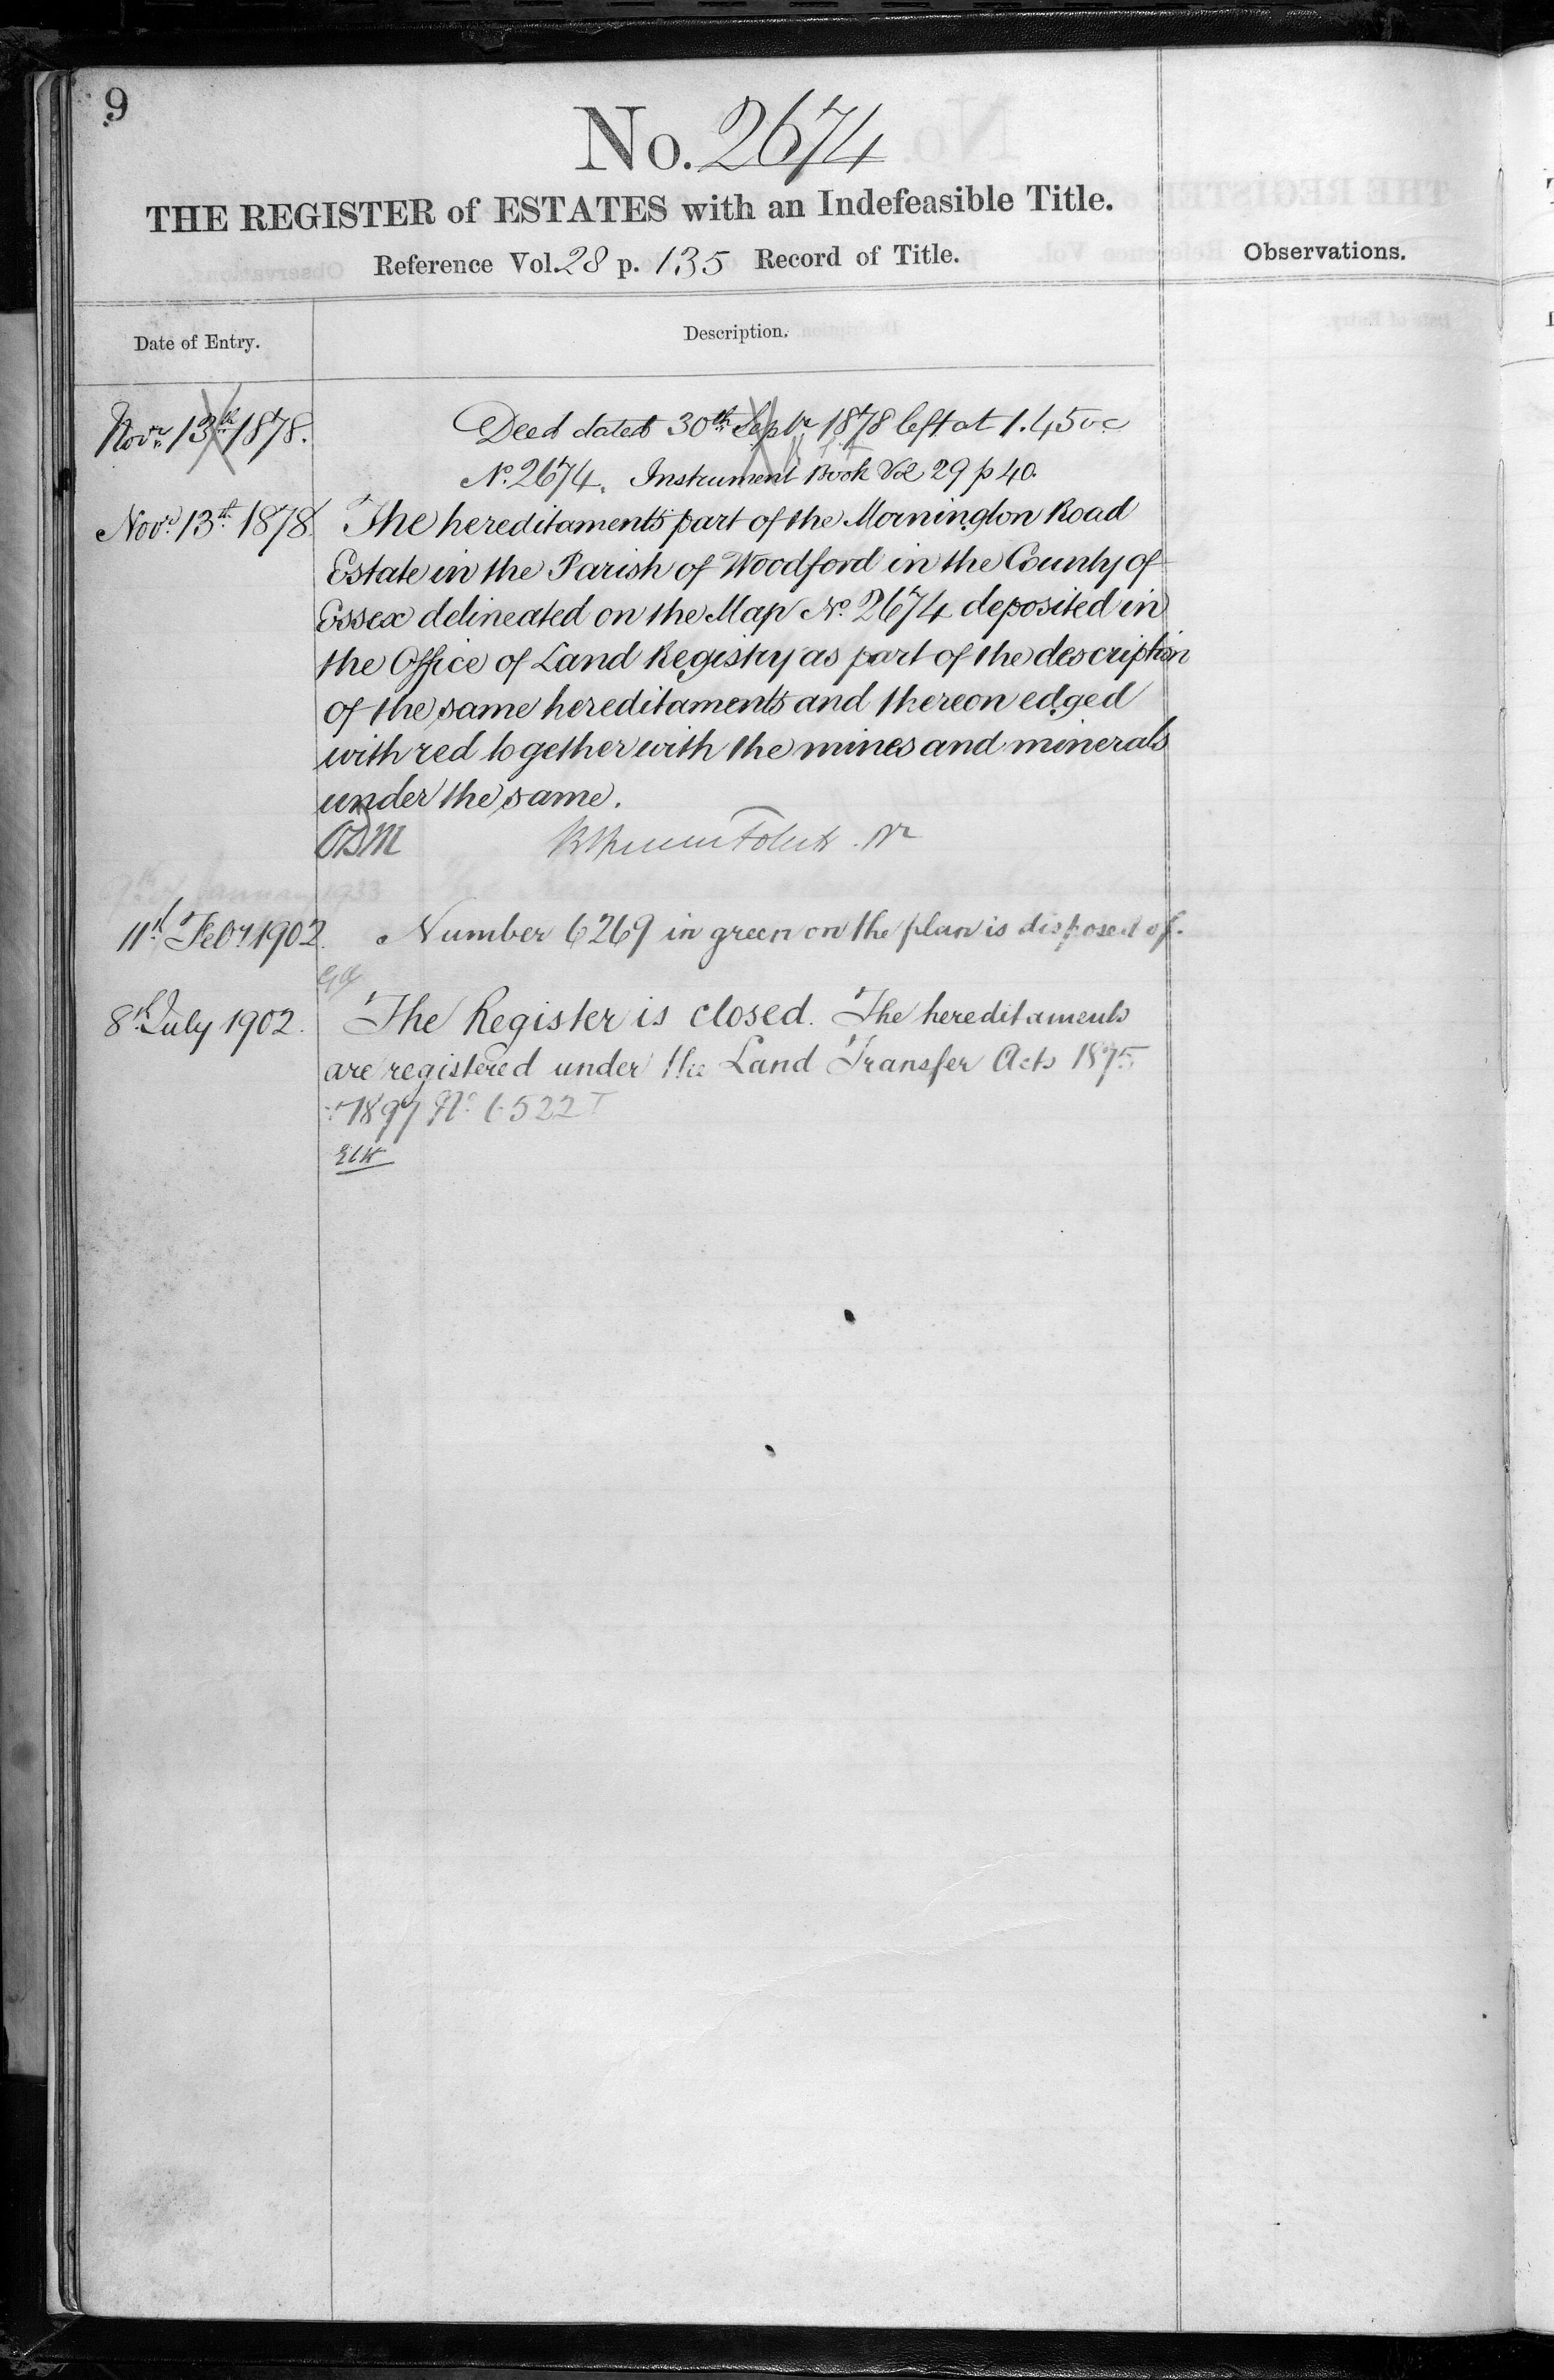 9
No. 2674
THE REGISTER of ESTATES with an Indefeasible Title.
Reference Vol. 28 p. 135 Record of Title.
Observations.
Date of Entry.
Description.
Novr. 13th 1878.
Deed dated 30th Septr 1878 left at 1.45
No. 2674. Instrument Book Vol 29 p 40.
Novr. 13th 1878. The hereditaments part of the Mornington Road
Estate in the Parish of Woodford in the County of
Essex delineated on the Map No. 2674 deposited in
the Office of Land Registry as part of the description
of the same hereditaments and thereon edged
with red together with the mines and minerals
under the same.
11th Feby 1902. Number 6269 in green on the plan is disposed of.
8th July 1902. The Register is closed. The hereditaments
are registered under the Land Transfer Acts 1875
1897 No. 6522